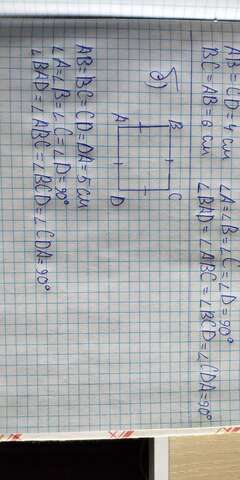 AB = CD = 4 см
BC = AB = 6 см
∠A = ∠B = ∠C = ∠D = 90°
∠BAD = ∠ABC = ∠BCD = ∠CDA = 90°
б)
B C
A D
AB = BC = CD = DA = 5 см
∠A = ∠B = ∠C = ∠D = 90°
∠BAD = ∠ABC = ∠BCD = ∠CDA = 90°